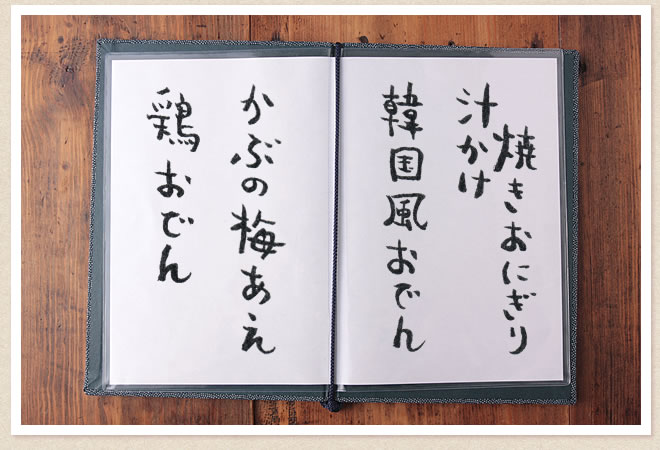 焼きおにぎり
汁かけ
韓国風おでん
かぶの梅あえ
鶏おでん